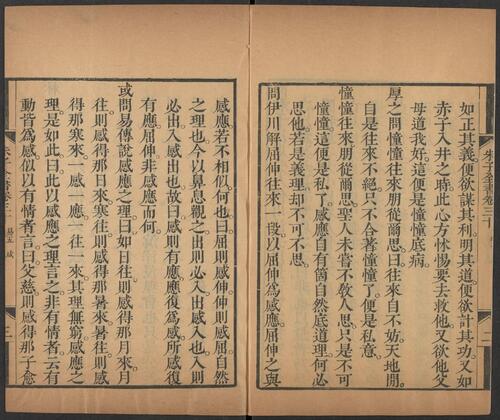 如正其義便欲謀其利明其道便欲計其功又如
赤子入井之時此心方怵惕要去救他又欲他父
母道我好這便是憧憧底病。
厚之問憧憧往來朋從爾思曰往來自不妨天地間
自是往來不絕只不合著憧憧了便是私意。
憧憧往來朋從爾思聖人未嘗不敎人思只是不可
憧憧這便是私了感應自有箇自然底道理何必
思他若是義理却不可不思。
問伊川解屈伸往來一段以屈伸爲感應屈伸之與
朱子全書卷三十
二
感應若不相似何也曰屈則感伸伸則感屈自然
之理也今以鼻息觀之出則必入出感入也入則
必出入感出也故曰感則有應應復爲感所感復
有應屈伸非感應而何。
或問易傳說感應之理曰如日往則感得那月來月
往則感得那日來寒往則感得那暑來暑往則感
得那寒來一感一應一往一來其理無窮感應之
理是如此曰此以感應之理言之非有情者云有
動皆爲感似以有情者言曰父慈則感得那子愈
三